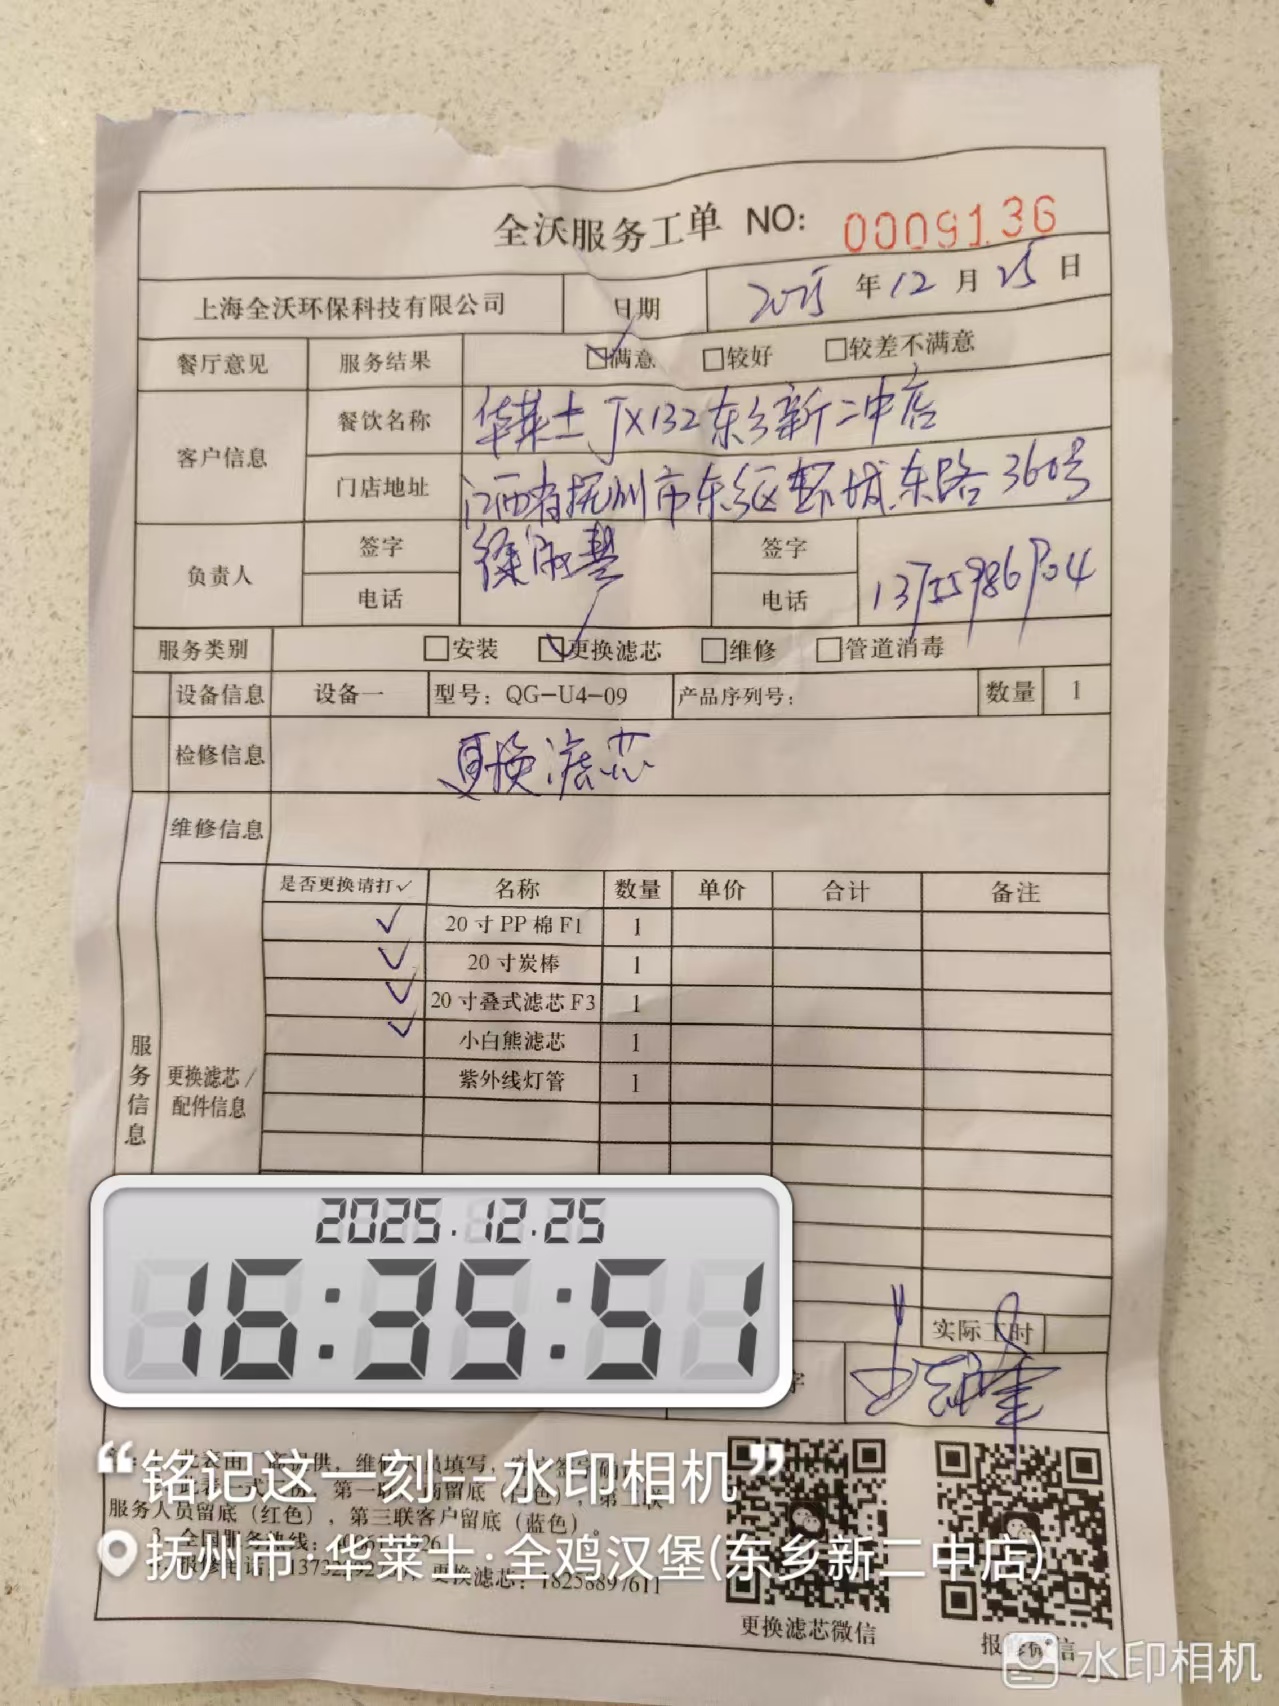 全沃服务工单 NO: 0009136
上海全沃环保科技有限公司 日期 2025年12月25日
餐厅意见 服务结果 ☑满意 □较好 □较差不满意
客户信息 餐饮名称 华莱士JX132东乡新二中店
门店地址 江西省抚州市东乡区环城东路360号
负责人 签字 签字
电话 电话
服务类别 □安装 ☑更换滤芯 □维修 □管道消毒
设备信息 设备一 型号：QG-U4-09 产品序列号： 数量 1
检修信息 更换滤芯
维修信息
服务信息
更换滤芯/配件信息
是否更换请打✓ 名称 数量 单价 合计 备注
✓ 20寸PP棉F1 1
✓ 20寸炭棒 1
✓ 20寸叠式滤芯F3 1
✓ 小白熊滤芯 1
紫外线灯管 1
2025.12.25
16:35:51
实际工时
字
“铭记这一刻--水印相机”
服务人员留底（红色），第三联客户留底（蓝色）。
抚州市·华莱士·全鸡汉堡(东乡新二中店)
更换滤芯：18258897611
更换滤芯微信
水印相机